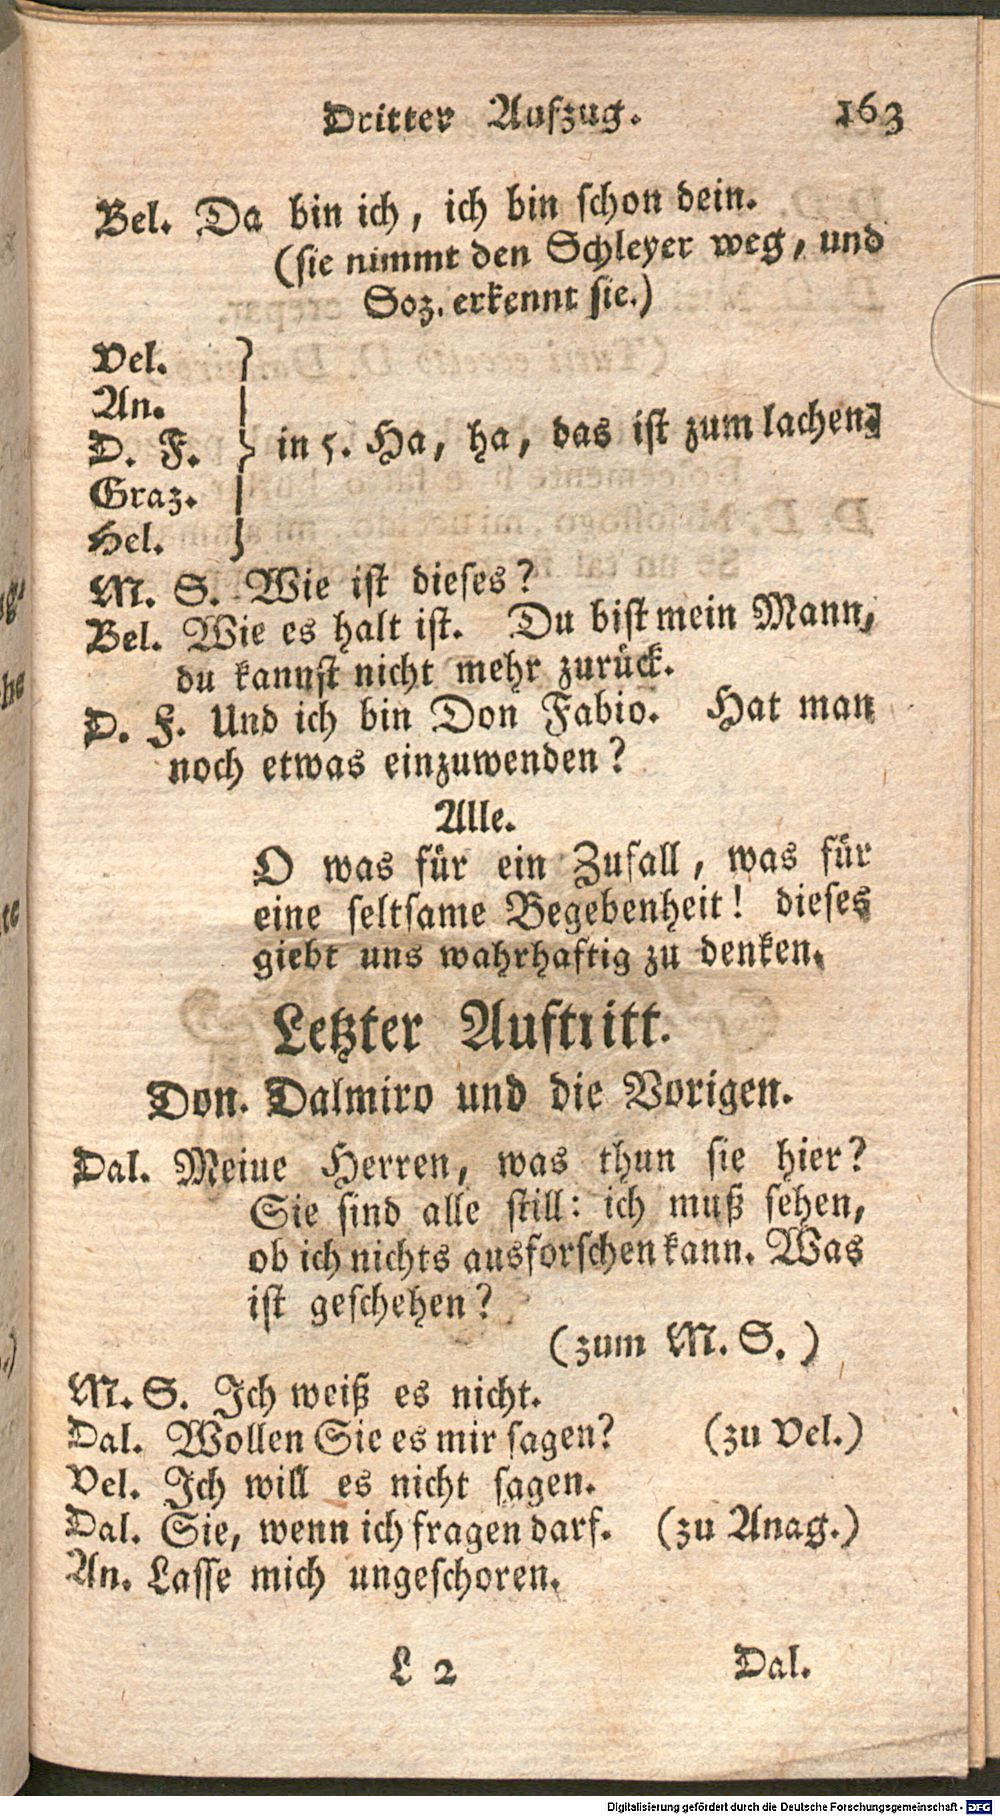 Dritter Aufzug. 163
Bel. Da bin ich, ich bin schon dein.
(sie nimmt den Schleyer weg, und
Soz. erkennt sie.)
Vel.
An.
D. F. } in 5. Ha, ha, das ist zum lachen.
Graz.
Hel.
M. S. Wie ist dieses?
Bel. Wie es halt ist. Du bist mein Mann,
du kannst nicht mehr zurück.
D. F. Und ich bin Don Fabio. Hat man
noch etwas einzuwenden?
Alle.
O was für ein Zufall, was für
eine seltsame Begebenheit! dieses
giebt uns wahrhaftig zu denken.
Letzter Auftritt.
Don. Dalmiro und die Vorigen.
Dal. Meine Herren, was thun sie hier?
Sie sind alle still: ich muß sehen,
ob ich nichts ausforschen kann. Was
ist geschehen?
(zum M. S.)
M. S. Ich weiß es nicht.
Dal. Wollen Sie es mir sagen? (zu Vel.)
Vel. Ich will es nicht sagen.
Dal. Sie, wenn ich fragen darf. (zu Anag.)
An. Lasse mich ungeschoren.
L 2 Dal.
Digitalisierung gefördert durch die Deutsche Forschungsgemeinschaft - DFG